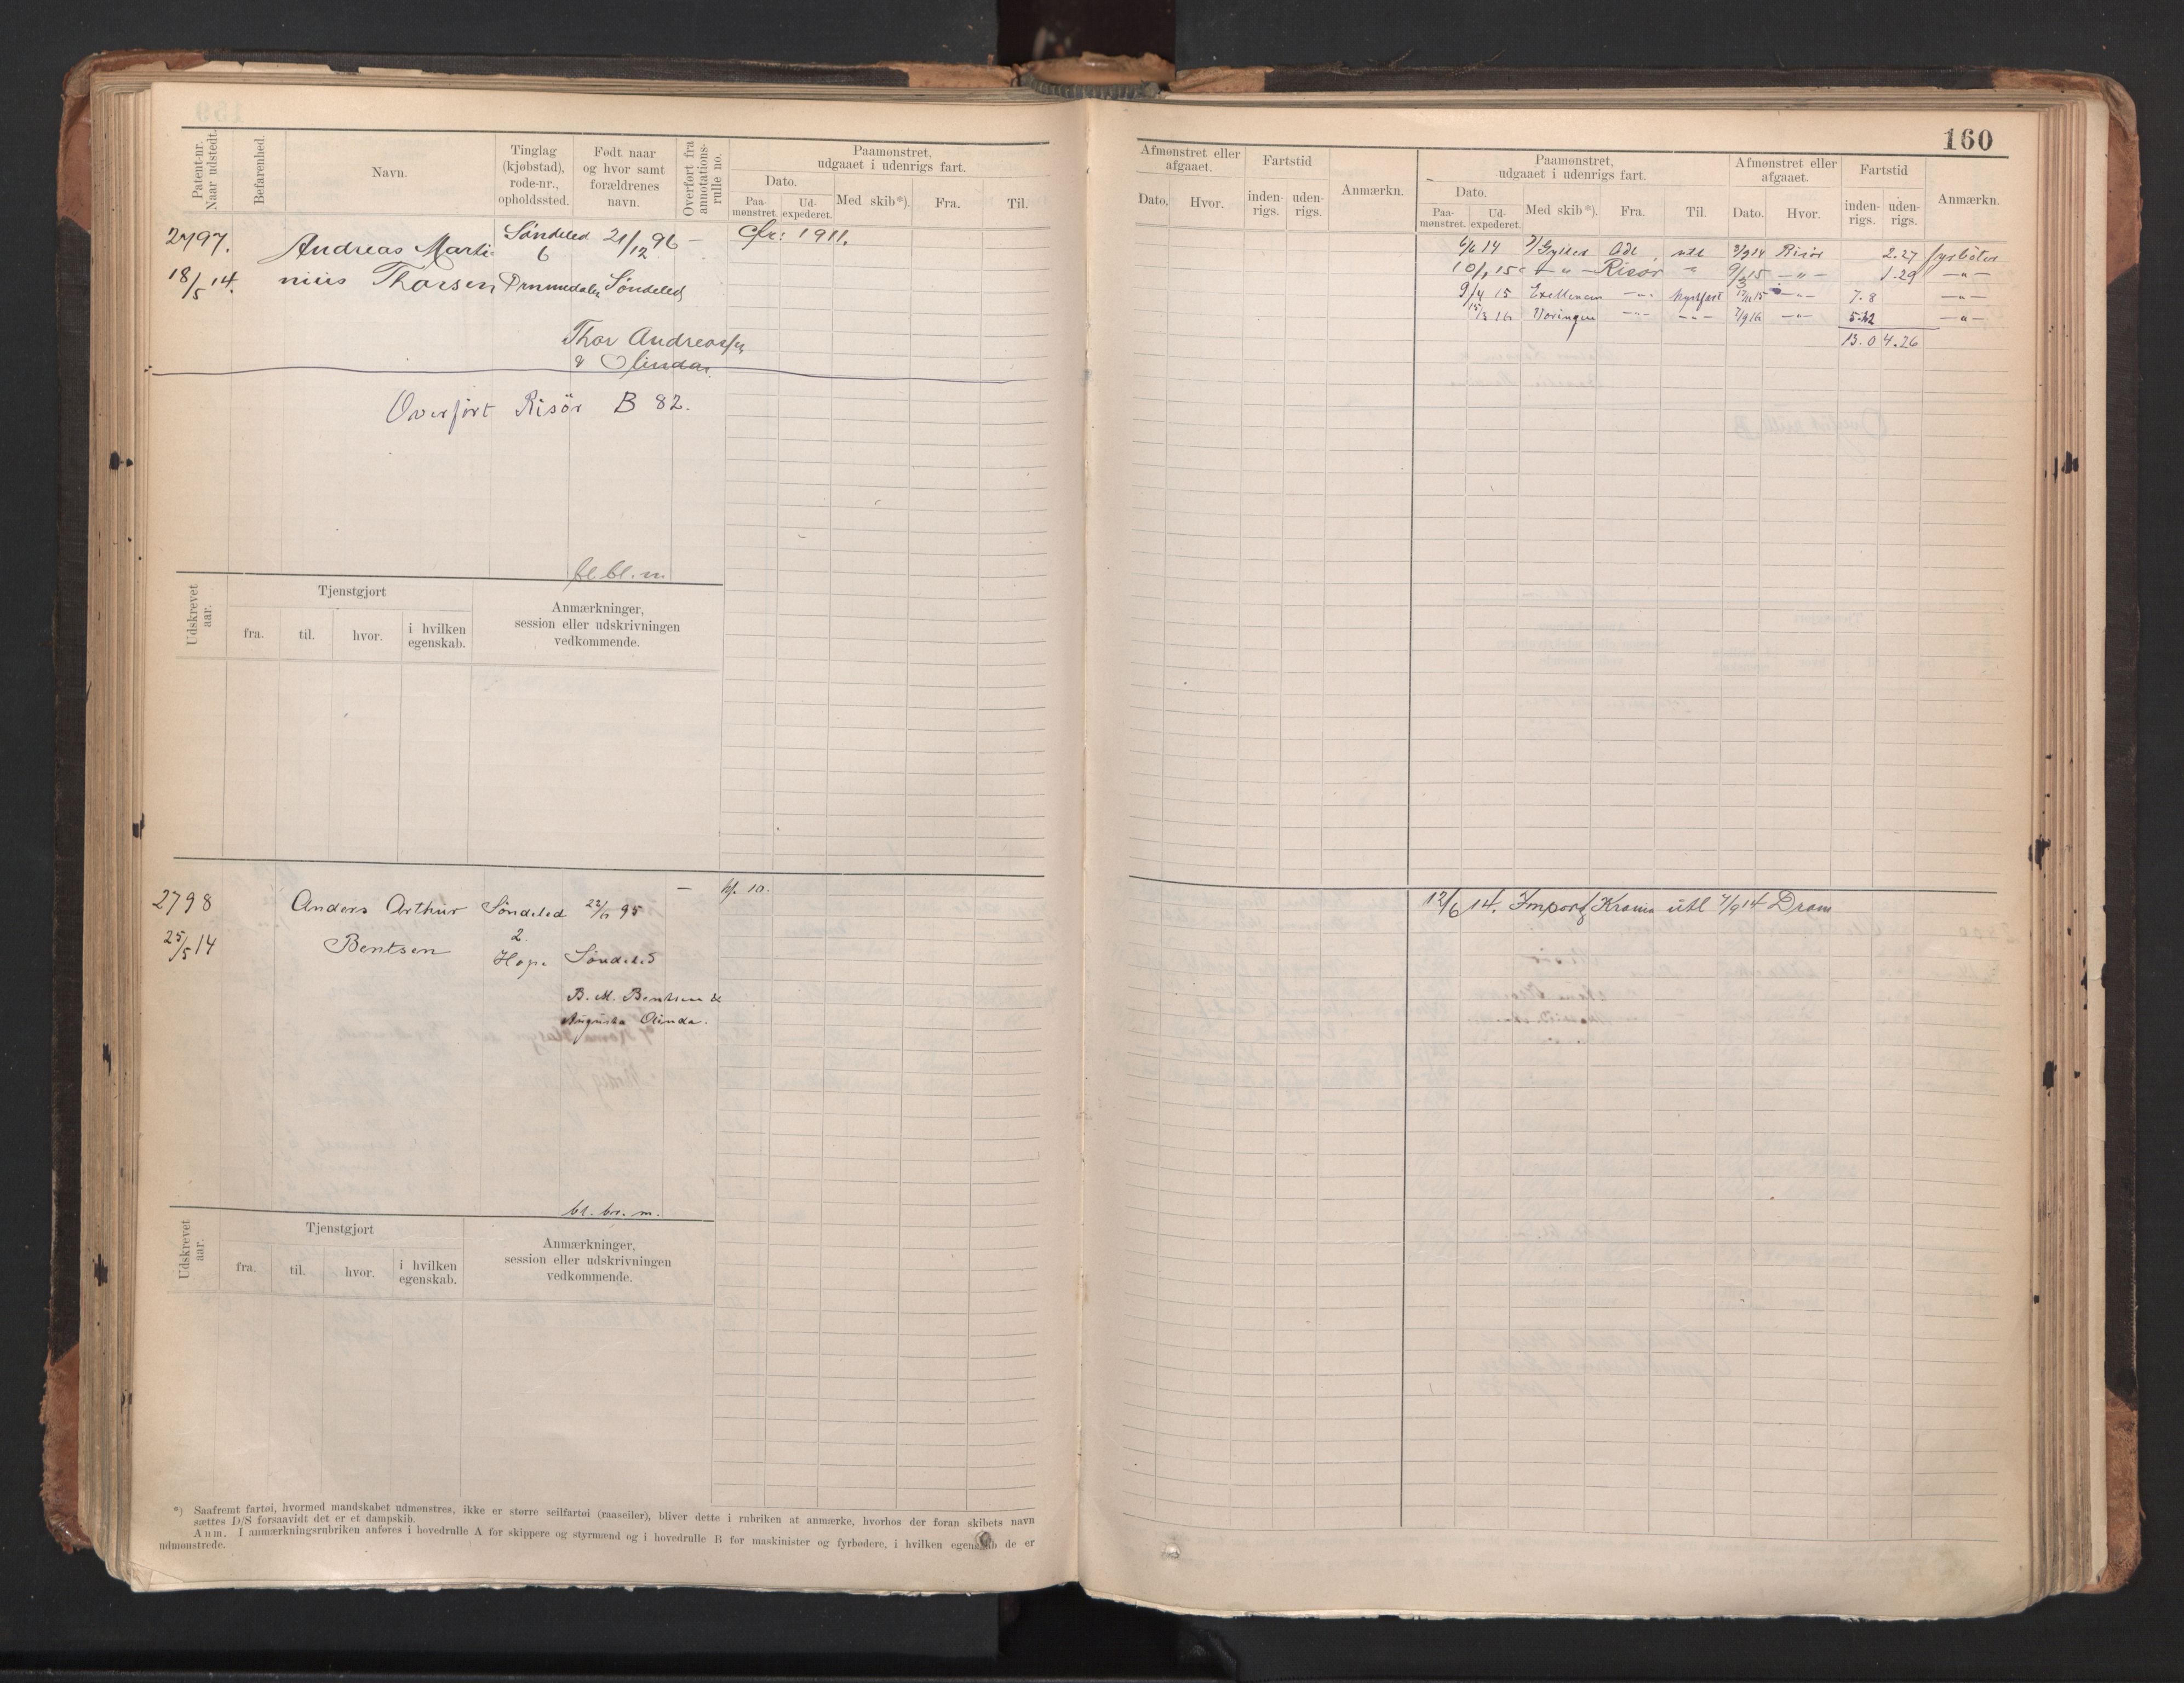 160
Patent-nr. Naar udstedt.
Befarenhed.
Navn.
Tinglag (kjøbstad), rode-nr., opholdssted.
Født naar og hvor samt forældrenes navn.
Overført fra annotations-rulle no.
Paamønstret, udgaaet i udenrigs fart.
Dato.
Paa-mønstret.
Ud-expederet.
Med skib*).
Fra.
Til.
2797.
18/5 14.
Andreas Marti-
nius Thorsen
Søndeled
6
21/12 96
Søndeled
Thor Andreassen
& Olinda.
—
Cfr: 1911.
Overført Risör B 82.
bl. bl. m.
Udskrevet aar.
Tjenstgjort
fra.
til.
hvor.
i hvilken egenskab.
Anmærkninger, session eller udskrivningen vedkommende.
2798
25/5 14
Anders Arthur
Bentsen
Søndeled
2
Hope
95
Søndeled
B. M. Bentsen &
Augusta Olinda.
—
10.
bl. br. m.
Udskrevet aar.
Tjenstgjort
fra.
til.
hvor.
i hvilken egenskab.
Anmærkninger, session eller udskrivningen vedkommende.
*) Saafremt fartøi, hvormed mandskabet udmønstres, ikke er større seilfartøi (raaseiler), bliver dette i rubriken at anmærke, hvorhos der foran skibets navn
sættes D/S forsaavidt det er et dampskib.
Anm. I anmærkningsrubriken anføres i hovedrulle A for skippere og styrmænd og i hovedrulle B for maskinister og fyrbødere, i hvilken egenskab de er
udmønstrede.
Afmønstret eller afgaaet.
Dato.
Hvor.
Fartstid
inden-rigs.
uden-rigs.
Anmærkn.
Paamønstret, udgaaet i udenrigs fart.
Dato.
Paa-mønstret.
Ud-expederet.
Med skib*).
Fra.
Til.
Afmønstret eller afgaaet.
Dato.
Hvor.
Fartstid
inden-rigs.
uden-rigs.
Anmærkn.
6/6 14 Gyller utl 14 Risör 2.27 fyrböter
15 — „ — Risör „ 15 — „ — 1.29 — „ —
9/4 15 Exellencen — „ — kystfart — „ — 7.8 — „ —
16 Væringen — „ — — „ — 7/9 16 — „ — — „ —
13.0 4.26
12/6 14. Import Krania utl 7/9 14 Dram